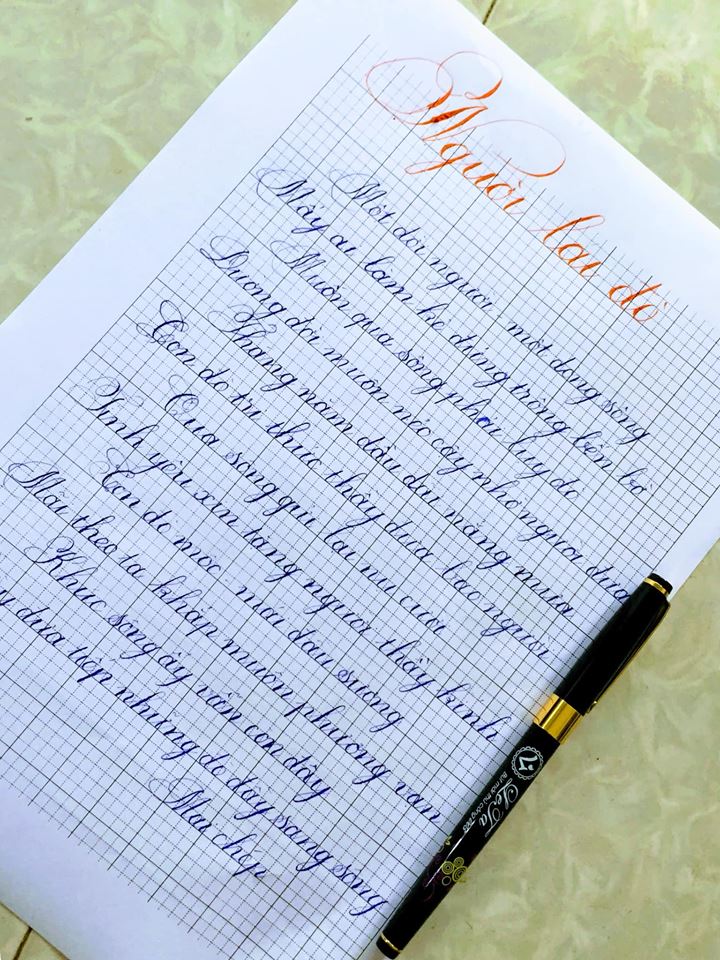 Người lái đò
Một đời người - một dòng sông
Mấy ai làm kẻ đứng trông bến bờ
Muốn qua sông phải lụy đò
Đường đời muôn nẻo cậy nhờ người đưa
Tháng năm dầu dãi nắng mưa
Con đò tri thức thầy đưa bao người
Qua sông gửi lại nụ cười
Tình yêu xin tặng người thầy kính
Con đò mộc - mái đầu sương
Mãi theo ta khắp muôn phương vạn
Khúc sông ấy vẫn còn đây
y đưa tiếp những đò đầy sang sông
Mai chép
LeTa